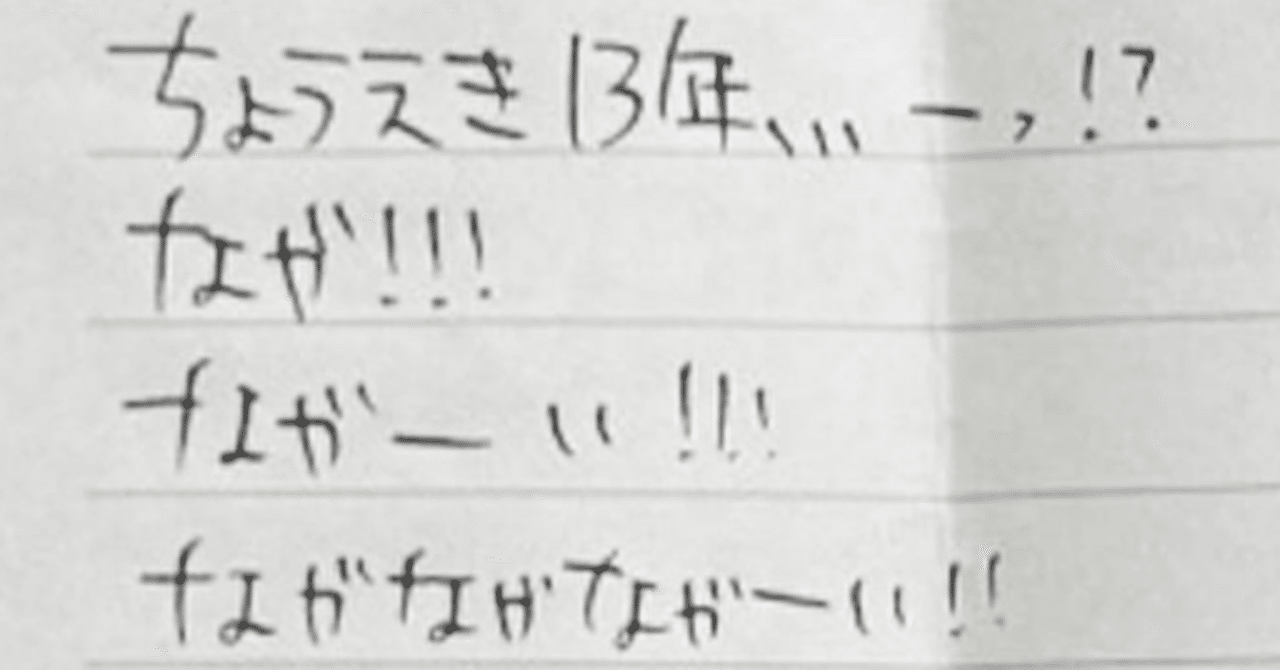 ちょうえき13年、、、ー、!?
ながい!!!
ながーい!!!
ながながながーい!!